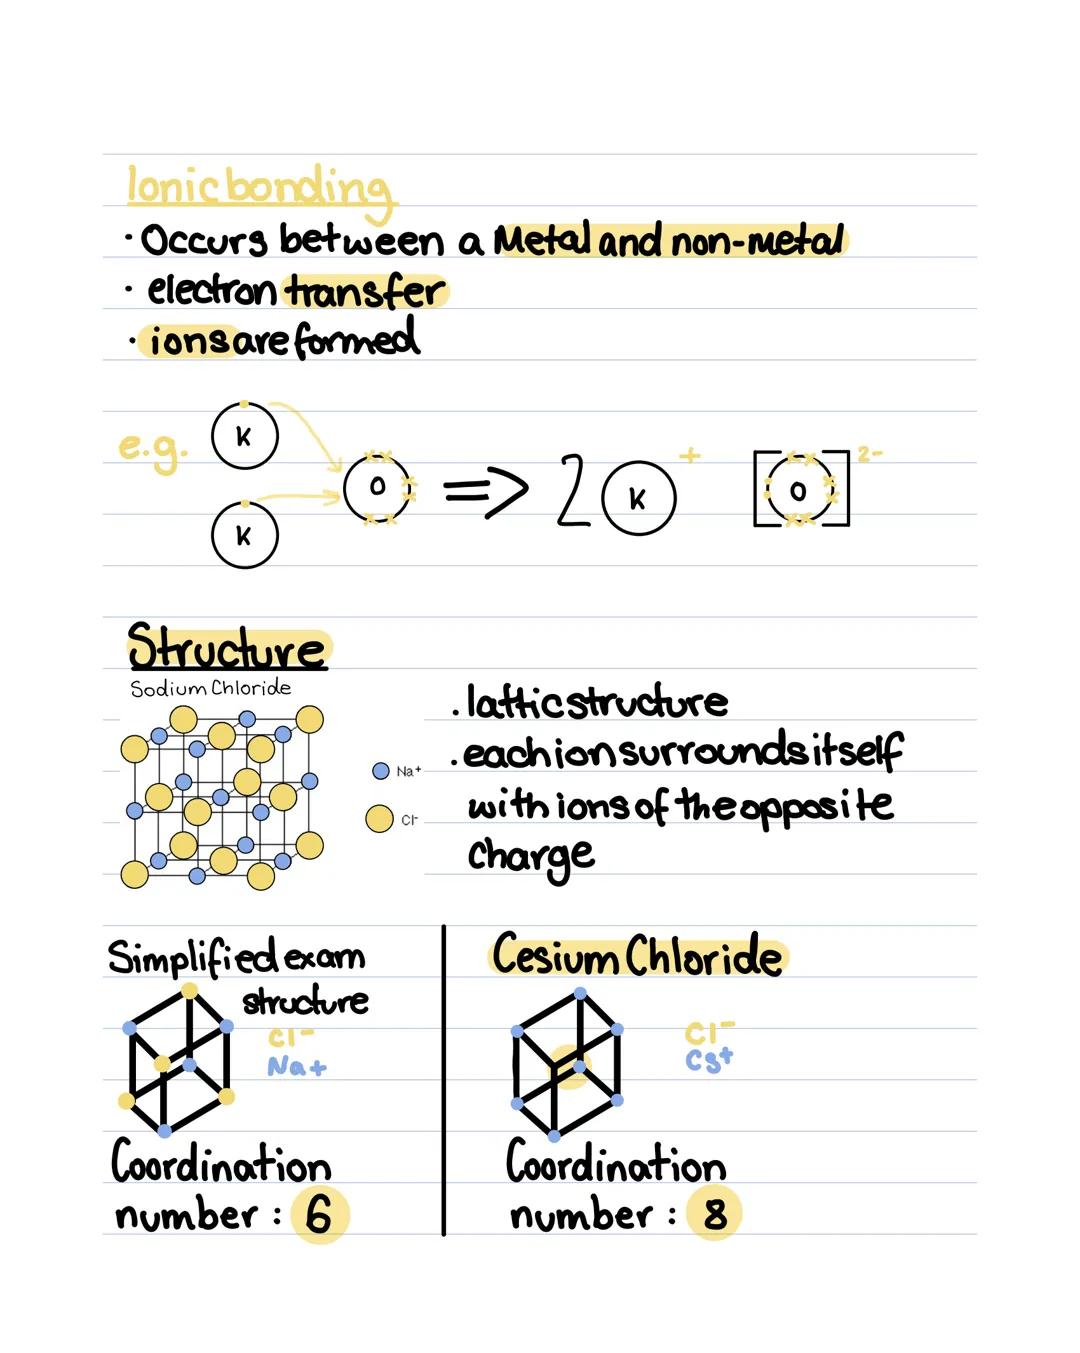 Ionic bonding
· Occurs between a Metal and non-metal
· electron transfer
· ions are formed
e.g.
K
K
O
⇒ 2 K + [O] 2-
Structure
Sodium Chloride
Na+
Cl-
. lattic structure
. each ion surrounds itself
with ions of the opposite
charge
Simplified exam
structure
Cl-
Na+
Coordination
number : 6
Cesium Chloride
Cl-
Cs+
Coordination
number : 8